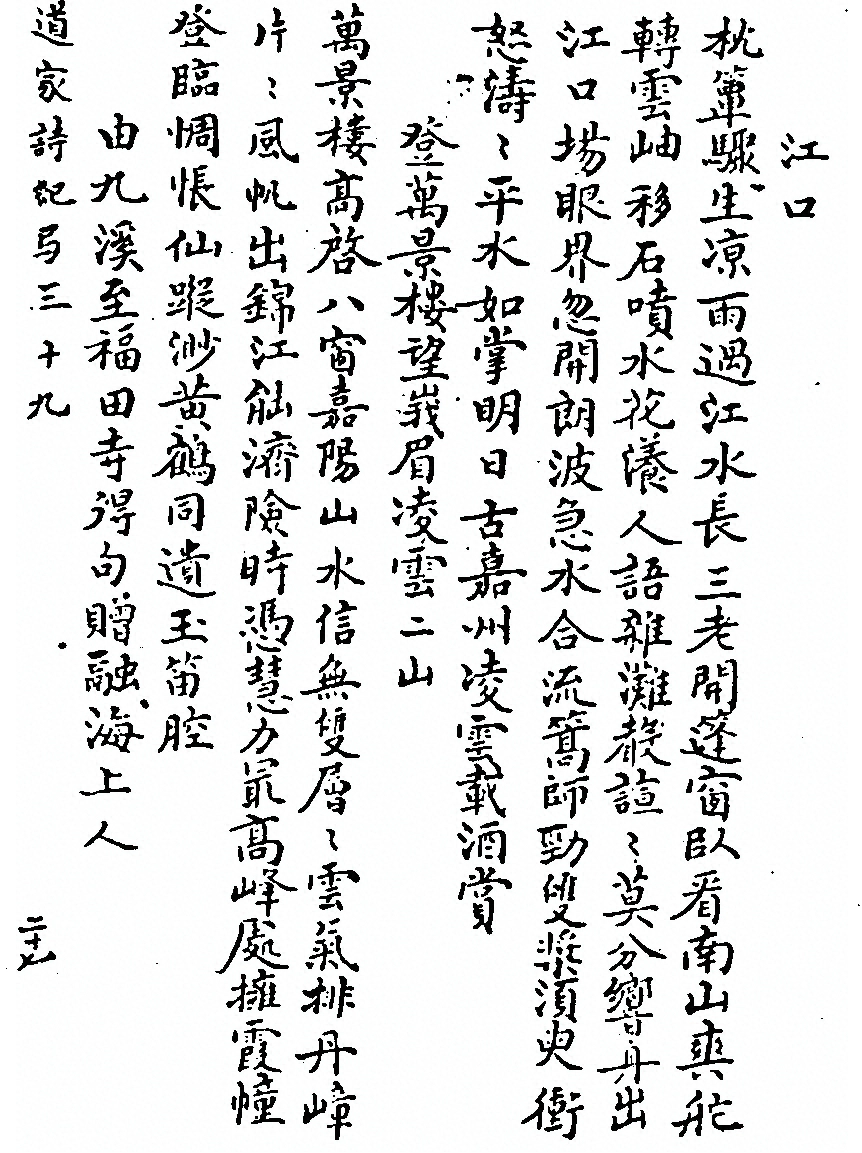 江口
枕簟驟生凉雨過江水長三老開蓬窗臥看南山爽舵
轉雲岫移石噴水花瀁人語雜灘聲諠〻莫分響舟出
江口場眼界忽開朗波急水合流篙師勁雙槳須臾衝
怒濤〻平水如掌明日古嘉州凌雲載酒賞
登萬景樓望峩眉凌雲二山
萬景樓高啓八窗嘉陽山水信無雙層〻雲氣排丹嶂
片〻風帆出錦江能濟險時憑慧力最高峰處擁霞幢
登臨惆悵仙蹤渺黃鶴同遺玉笛腔
由九溪至福田寺得句贈融海上人
道家詩紀弓三十九
二十九